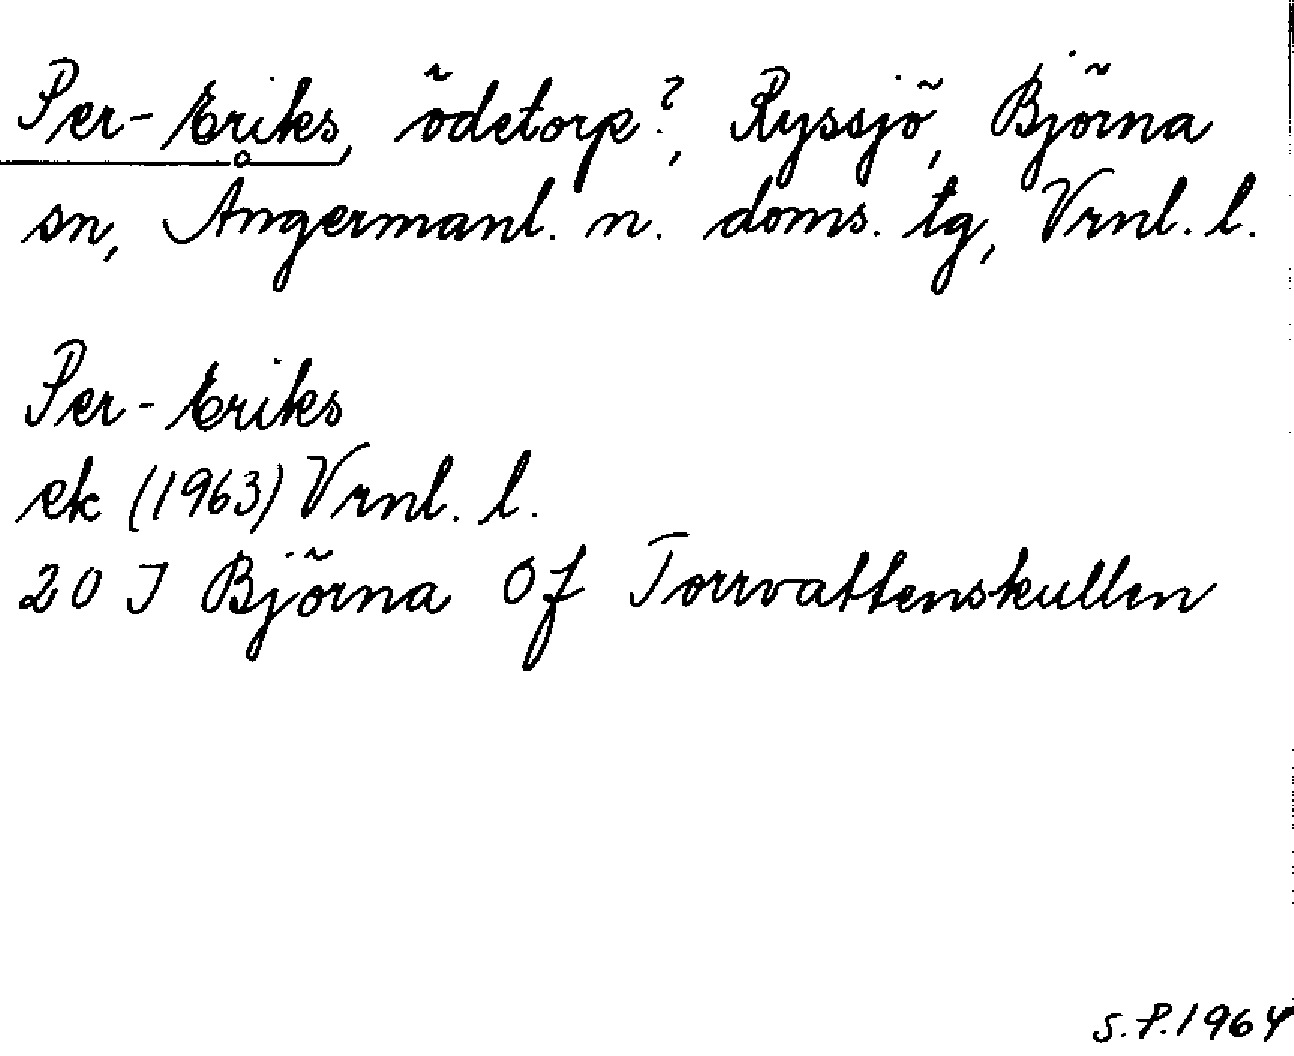 Per-Eriks, ödetorp?, Ryssjö, Björna
sn, Ångermanl. n. doms. tg, Vrnl. l.
Per-Eriks
ek (1963) Vrnl. l.
20 J Björna 0f Torrvattenskullen
S.P.1964